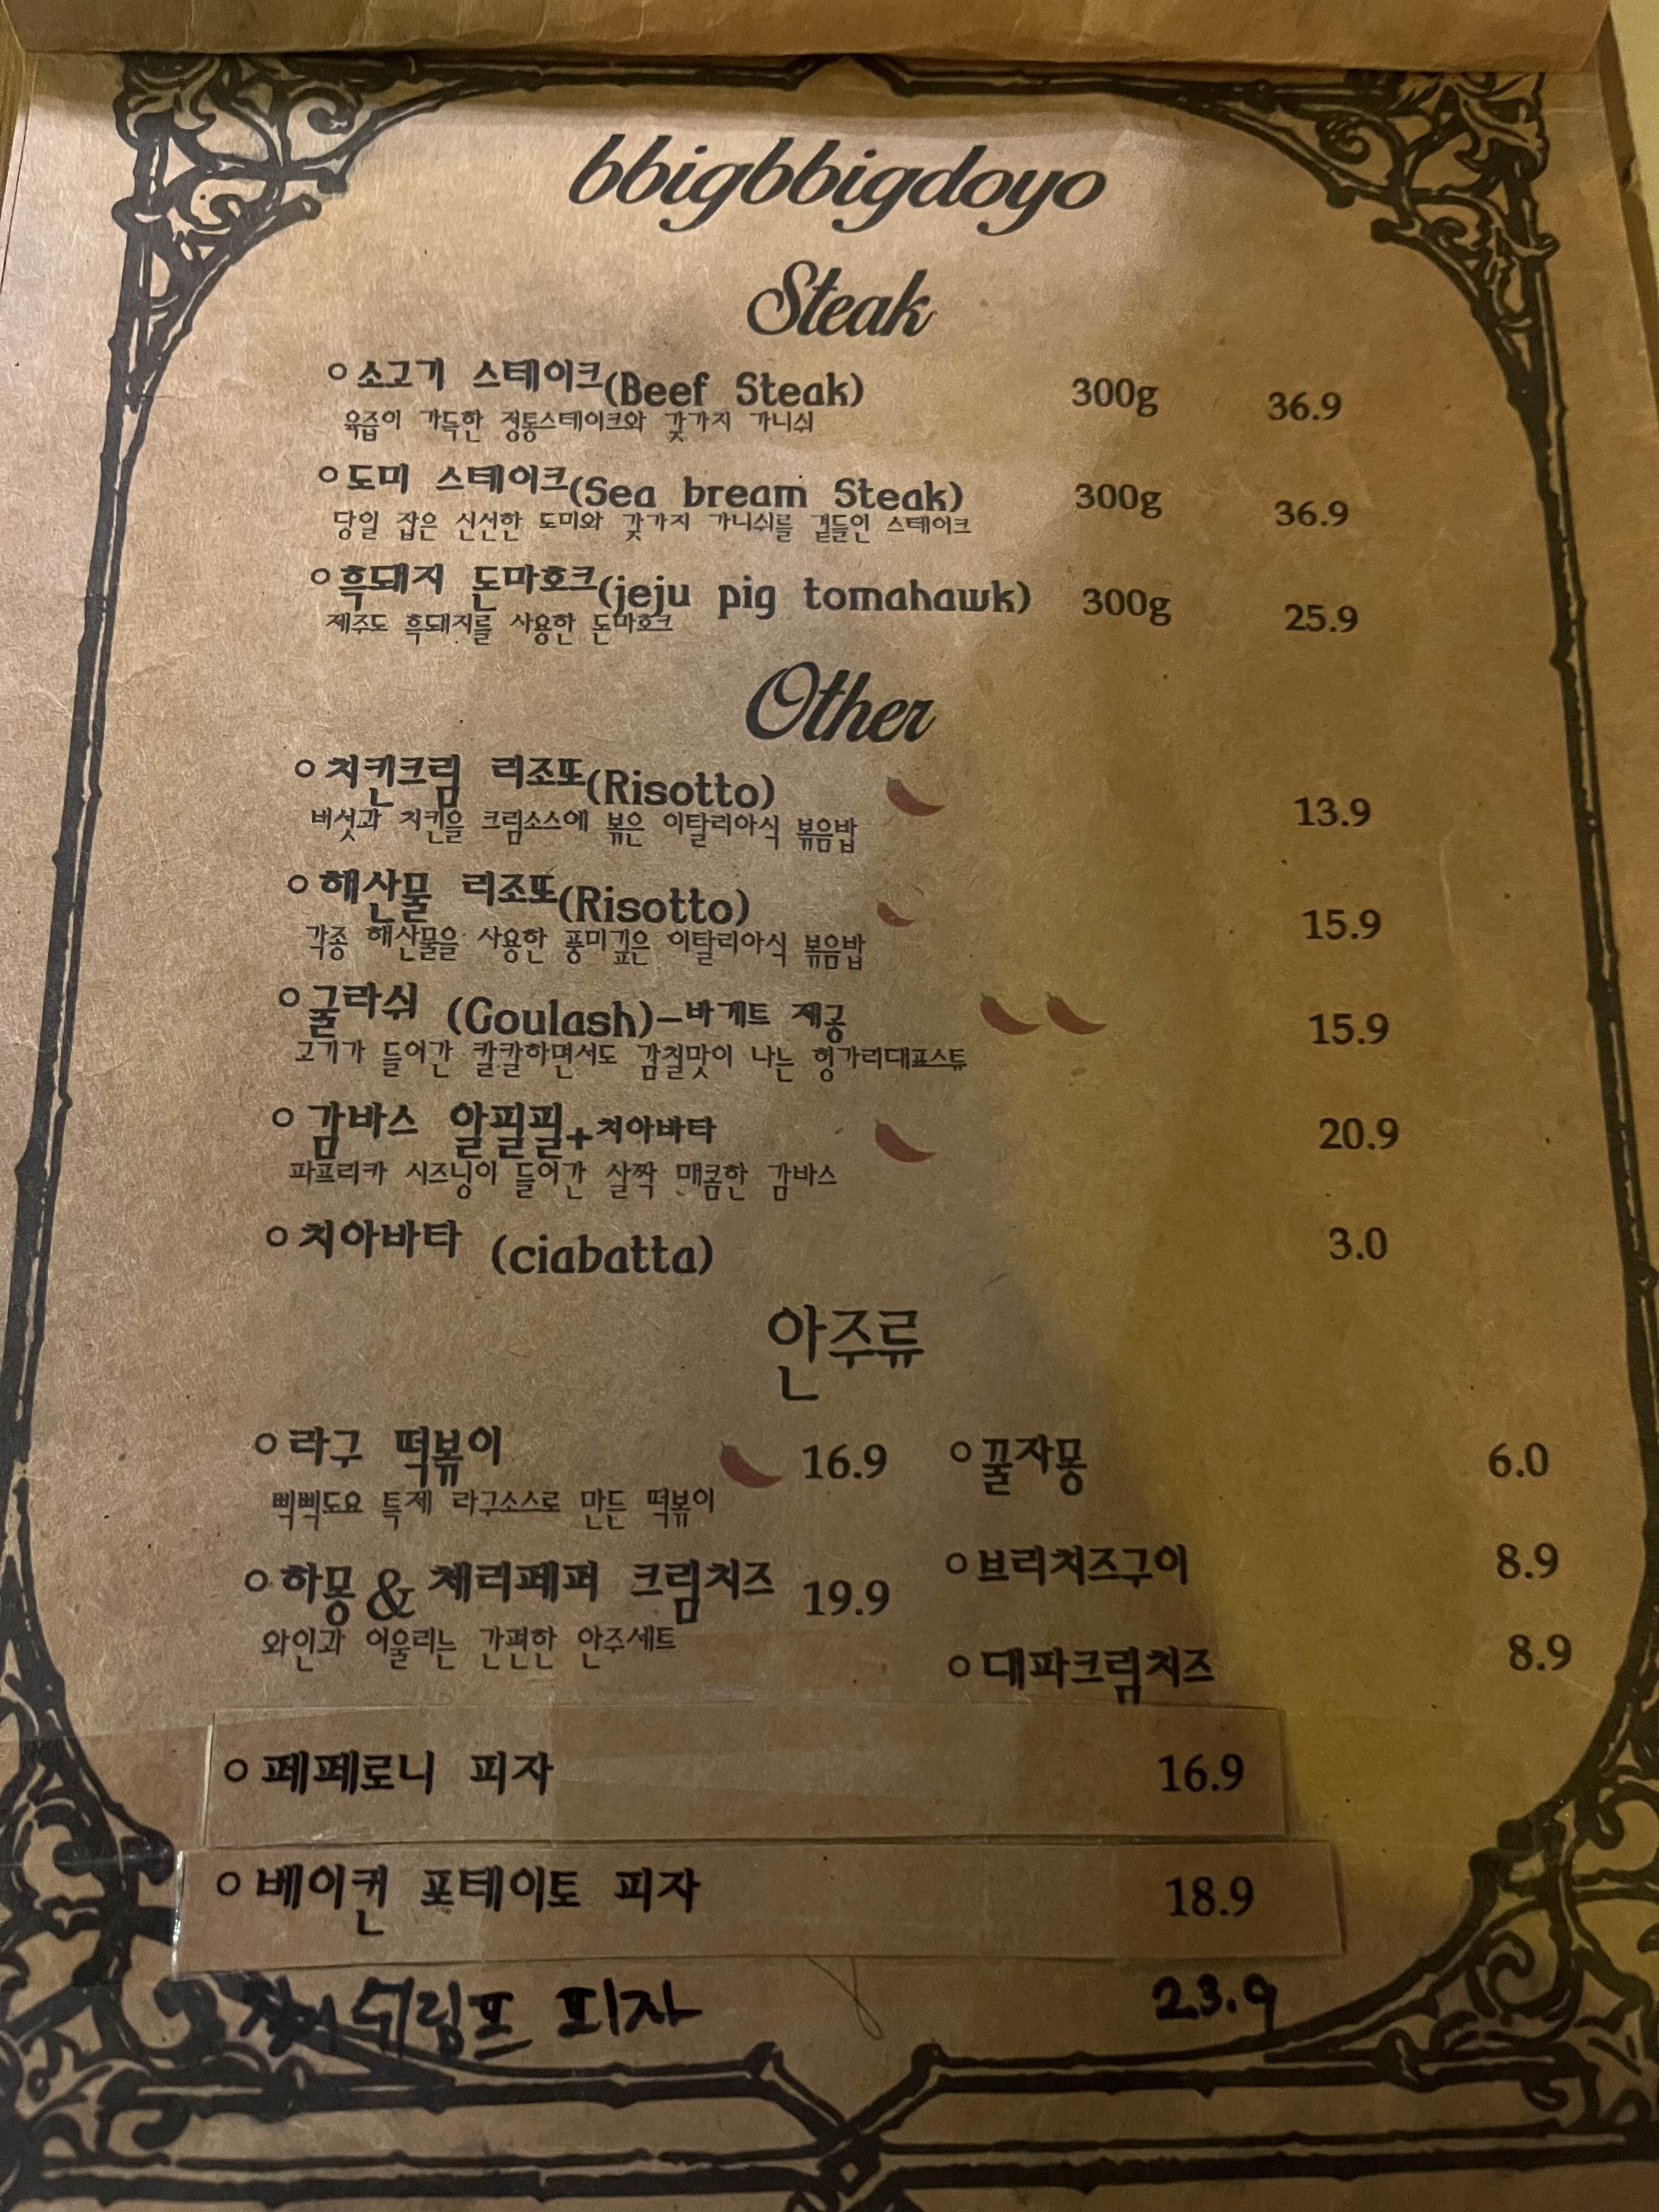 bbigbbigdoyo
Steak
○ 소고기 스테이크(Beef Steak) 300g 36.9
육즙이 가득한 정통스테이크와 갖가지 가니쉬
○ 도미 스테이크(Sea bream Steak) 300g 36.9
당일 잡은 신선한 도미와 갖가지 가니쉬를 곁들인 스테이크
○ 흑돼지 돈마호크(jeju pig tomahawk) 300g 25.9
제주도 흑돼지를 사용한 돈마호크
Other
○ 치킨크림 리조또(Risotto) 13.9
버섯과 치킨을 크림소스에 볶은 이탈리아식 볶음밥
○ 해산물 리조또(Risotto) 15.9
각종 해산물을 사용한 풍미깊은 이탈리아식 볶음밥
○ 굴라쉬 (Goulash)-바게트 제공 15.9
고기가 들어간 칼칼하면서도 감칠맛이 나는 헝가리대표스튜
○ 감바스 알필필+치아바타 20.9
파프리카 시즈닝이 들어간 살짝 매콤한 감바스
○ 치아바타 (ciabatta) 3.0
안주류
○ 라구 떡볶이 16.9
삑삑도요 특제 라구소스로 만든 떡볶이
○ 하몽 & 체리페퍼 크림치즈 19.9
와인과 어울리는 간편한 안주세트
○ 꿀자몽 6.0
○ 브리치즈구이 8.9
○ 대파크림치즈 8.9
○ 페페로니 피자 16.9
○ 베이컨 포테이토 피자 18.9
쉬림프 피자 23.9